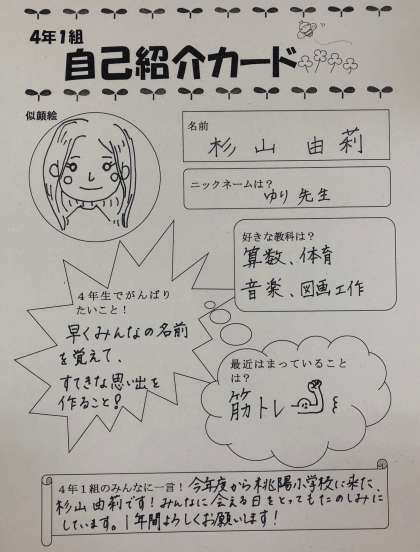 4年1組
自己紹介カード
似顔絵
名前
杉山 由莉
ニックネームは？
ゆり先生
好きな教科は？
算数、体育
音楽、図画工作
４年生でがんばり
たいこと！
早くみんなの名前
を覚えて、
すてきな思い出を
作ること！
最近はまっていること
は？
筋トレ
４年１組のみんなに一言！今年度から桃陽小学校に来た、
杉山由莉です！みんなに会える日をとってもたのしみに
しています。１年間よろしくお願いします！